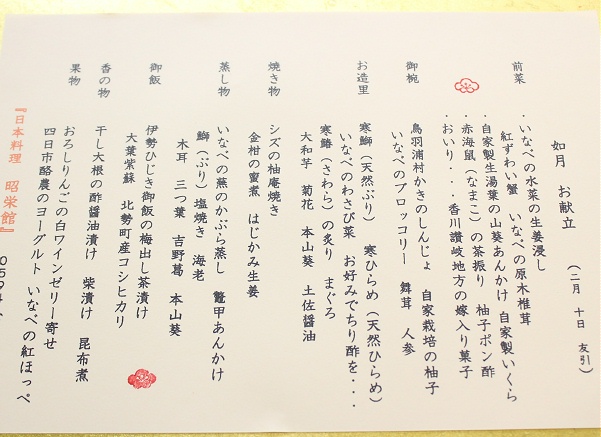 如月 お献立
(二月 十日 友引)
前菜
・いなべの水菜の生姜浸し
紅ずわい蟹 いなべの原木椎茸
・自家製生湯葉の山葵あんかけ 自家製いくら
・赤海鼠(なまこ)の茶振り 柚子ポン酢
・おいり・・・香川讃岐地方の嫁入り菓子
御椀
鳥羽浦村かきのしんじょ 自家栽培の柚子
いなべのブロッコリー 舞茸 人参
お造里
寒鰤(天然ぶり) 寒ひらめ(天然ひらめ)
いなべのわさび菜 お好みでちり酢を・・・
寒鰆(さわら)の炙り まぐろ
大和芋 菊花 本山葵 土佐醤油
焼き物
シズの柚庵焼き
金柑の蜜煮 はじかみ生姜
蒸し物
いなべの蕪のかぶら蒸し 鼈甲あんかけ
鰤(ぶり)塩焼き 海老
木耳 三つ葉 吉野葛 本山葵
御飯
伊勢ひじき御飯の梅出し茶漬け
大葉紫蘇 北勢町産コシヒカリ
香の物
干し大根の酢醤油漬け 柴漬け 昆布煮
果物
おろしりんごの白ワインゼリー寄せ
四日市酪農のヨーグルト いなべの紅ほっぺ
『日本料理 昭栄館』